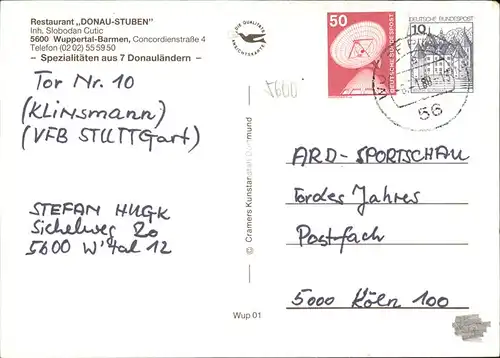 Restaurant „DONAU-STUBEN"
Inh. Slobodan Cutic
5600 Wuppertal-Barmen, Concordienstraße 4
Telefon (02 02) 55 59 50
– Spezialitäten aus 7 Donauländern –
Tor Nr. 10
(Klinsmann)
(VFB STUTTGart)
STEFAN HUGK
Sichelweg 20
5600 W'tal 12
© Cramers Kunstanstalt Dortmund
Wup 01
50
DEUTSCHE BUNDESPOST
10
DEUTSCHE BUNDESPOST
56
5600
ARD-SPORTSCHAU
Tor des Jahres
Postfach
5000 Köln 100